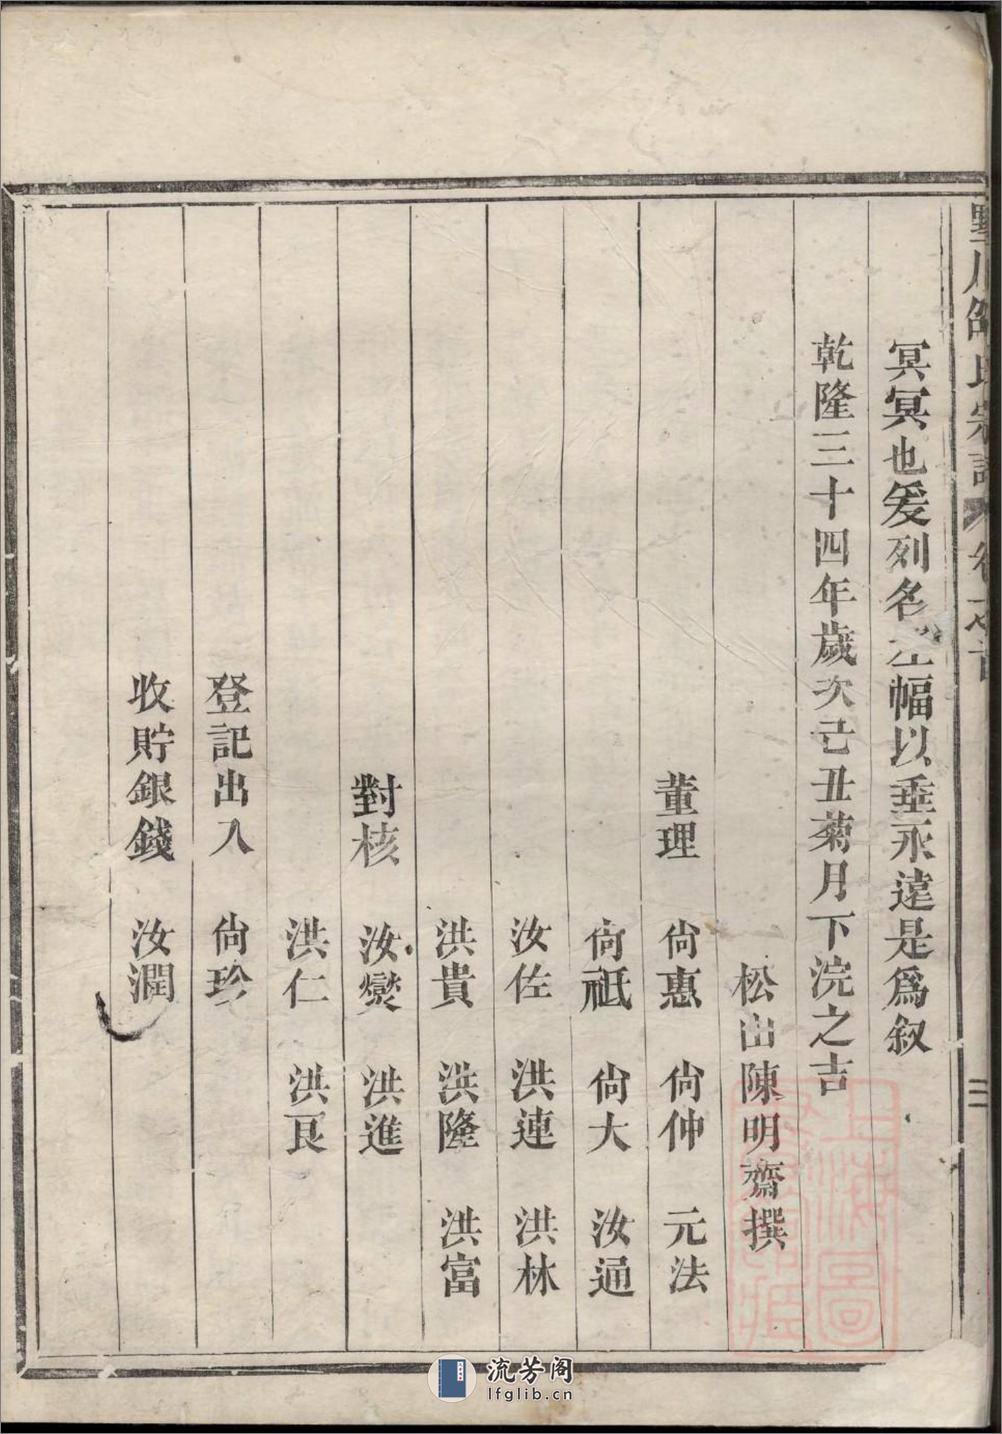 冥冥也爰列名左幅以垂永遠是爲叙
乾隆三十四年歲次己丑菊月下浣之吉
松山陳明齋撰
董理 尙惠 尙仲 元法
尙祇 尙大 汝通
汝佐 洪連 洪林
洪貴 洪隆 洪富
對核 汝燮 洪進
洪仁 洪艮
登記出入 尙珍
收貯銀錢 汝潤
流芳阁
lfglib.cn